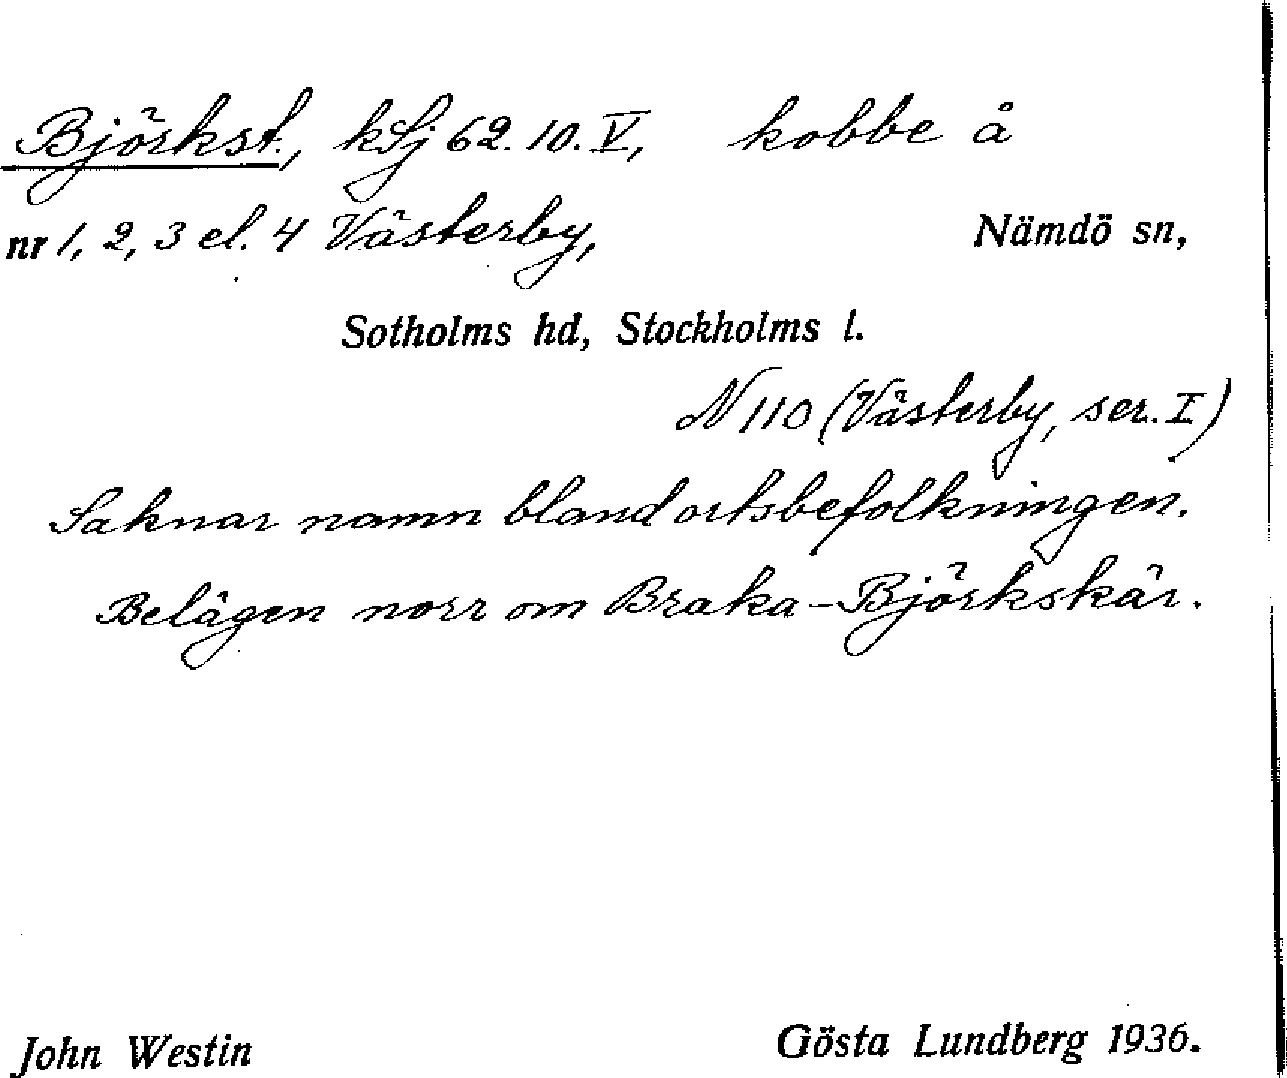 Björkst., kSj 62.10.V, kobbe å
nr 1, 2, 3 el. 4 Västerby, Nämdö sn,
Sotholms hd, Stockholms l.
N 110 (Västerby, ser. I)
Saknar namn bland ortsbefolkningen.
Belägen norr om Braka-Björkskär.
John Westin Gösta Lundberg 1936.